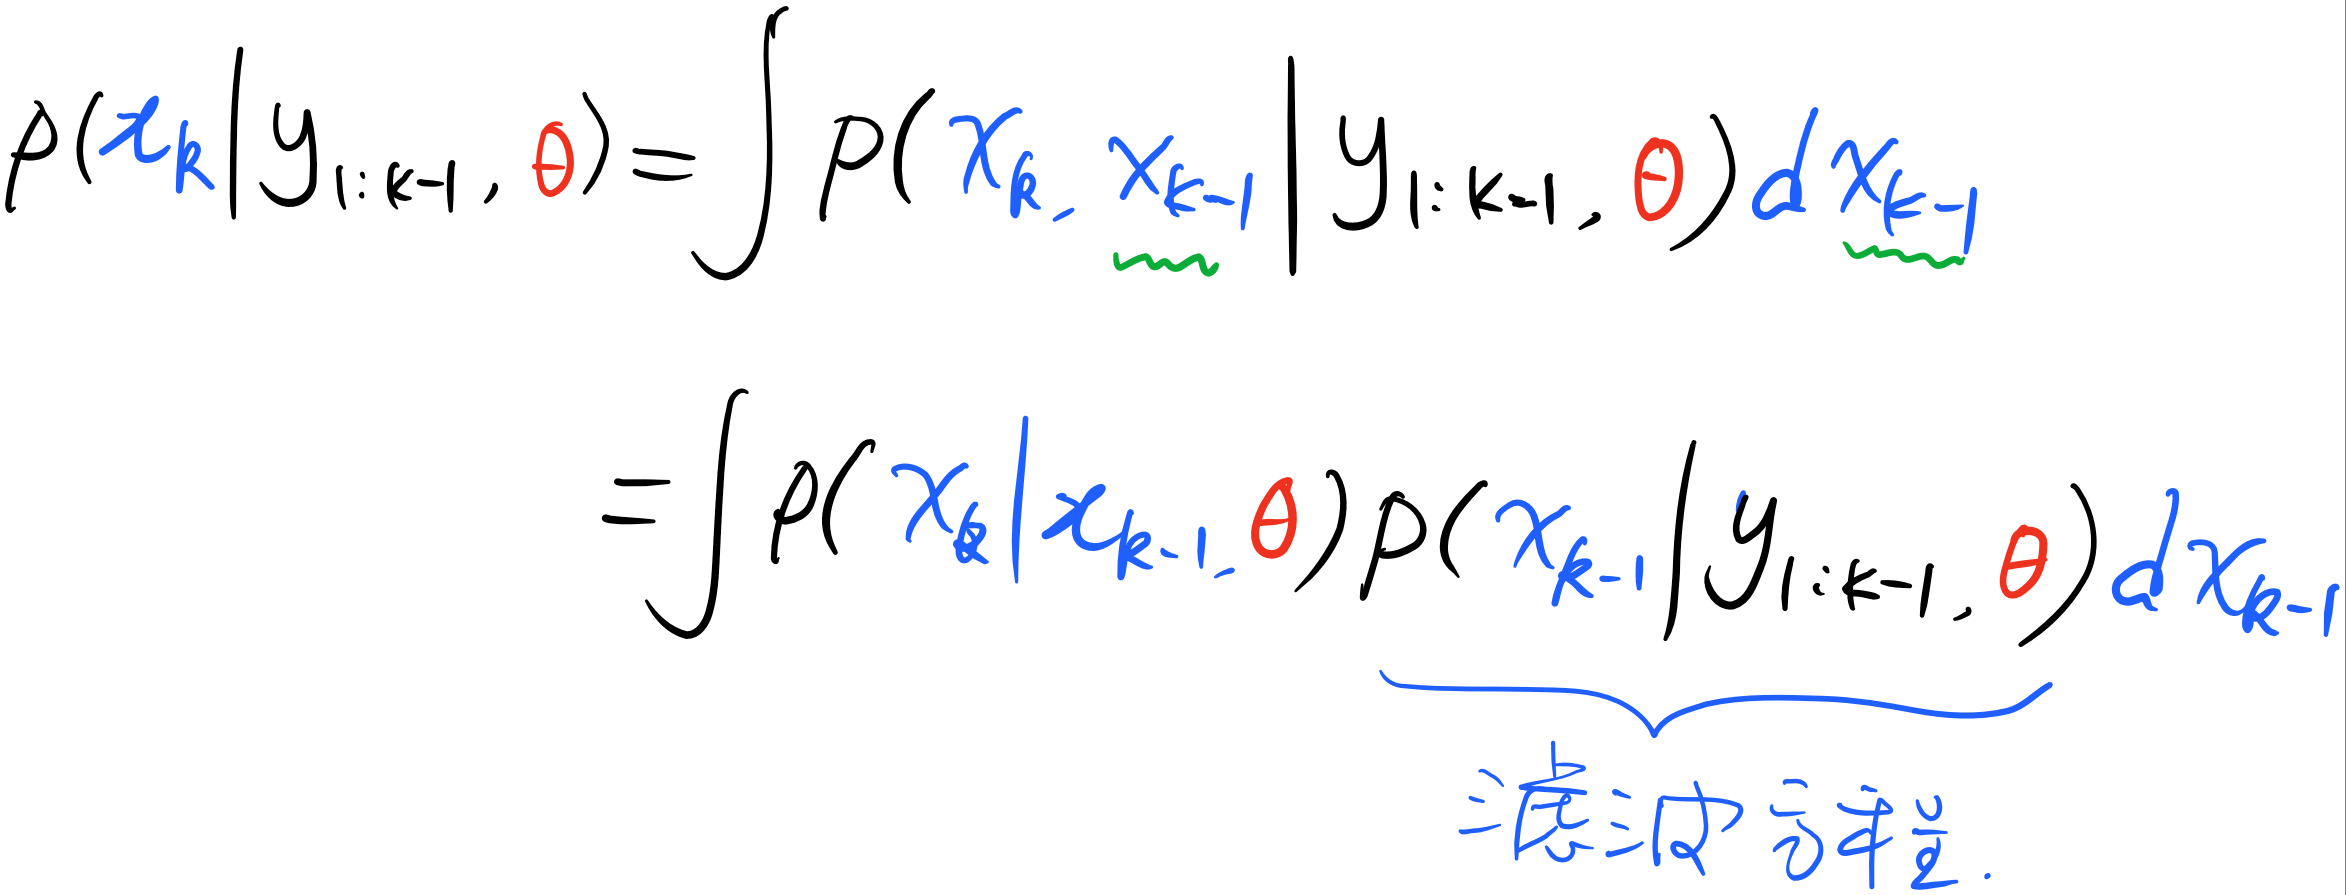 p(x_k | y_{1:k-1}, θ) = ∫ p(x_k, x_{k-1} | y_{1:k-1}, θ) dx_{k-1}
= ∫ p(x_k | x_{k-1}, θ) p(x_{k-1} | y_{1:k-1}, θ) dx_{k-1}
滤波